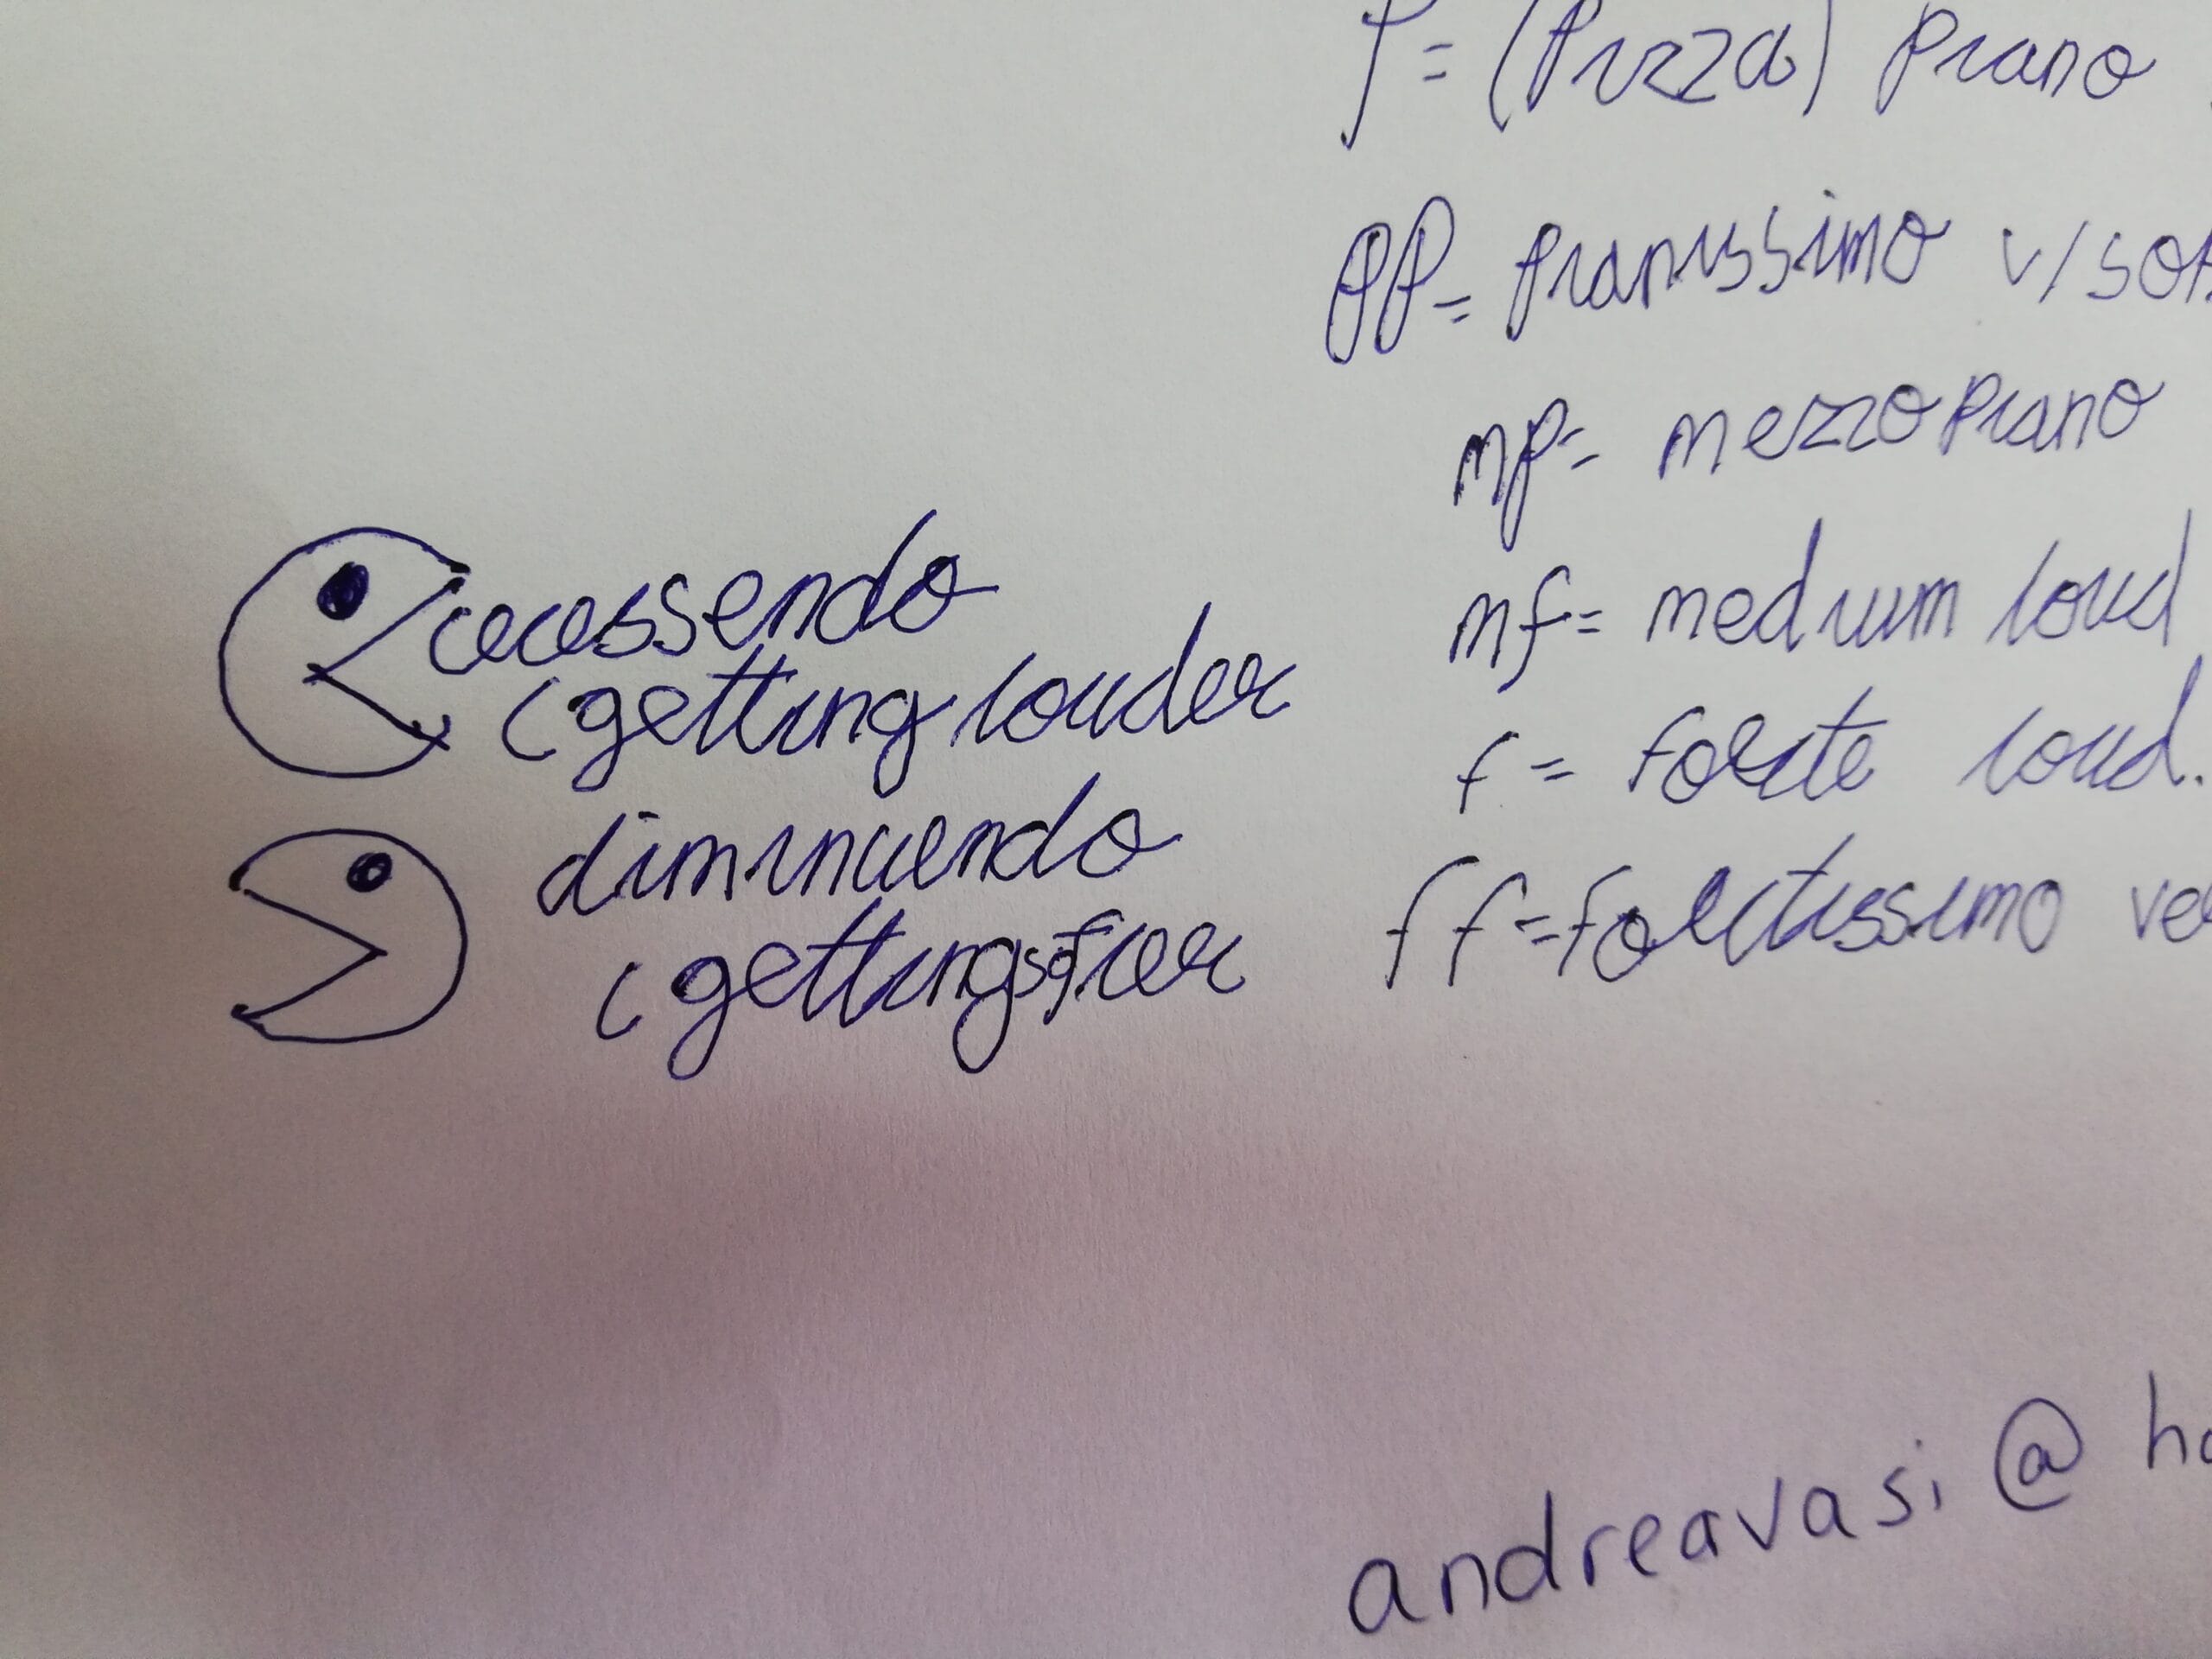 P = (Pizza) Piano
PP = Pianissimo v/sof
mp = mezzo Piano
mf = medium loud
f = Forte loud.
ff = Fortissimo ve
crecessendo
(getting louder
diminuendo
(getting softer
andreavasi@ho